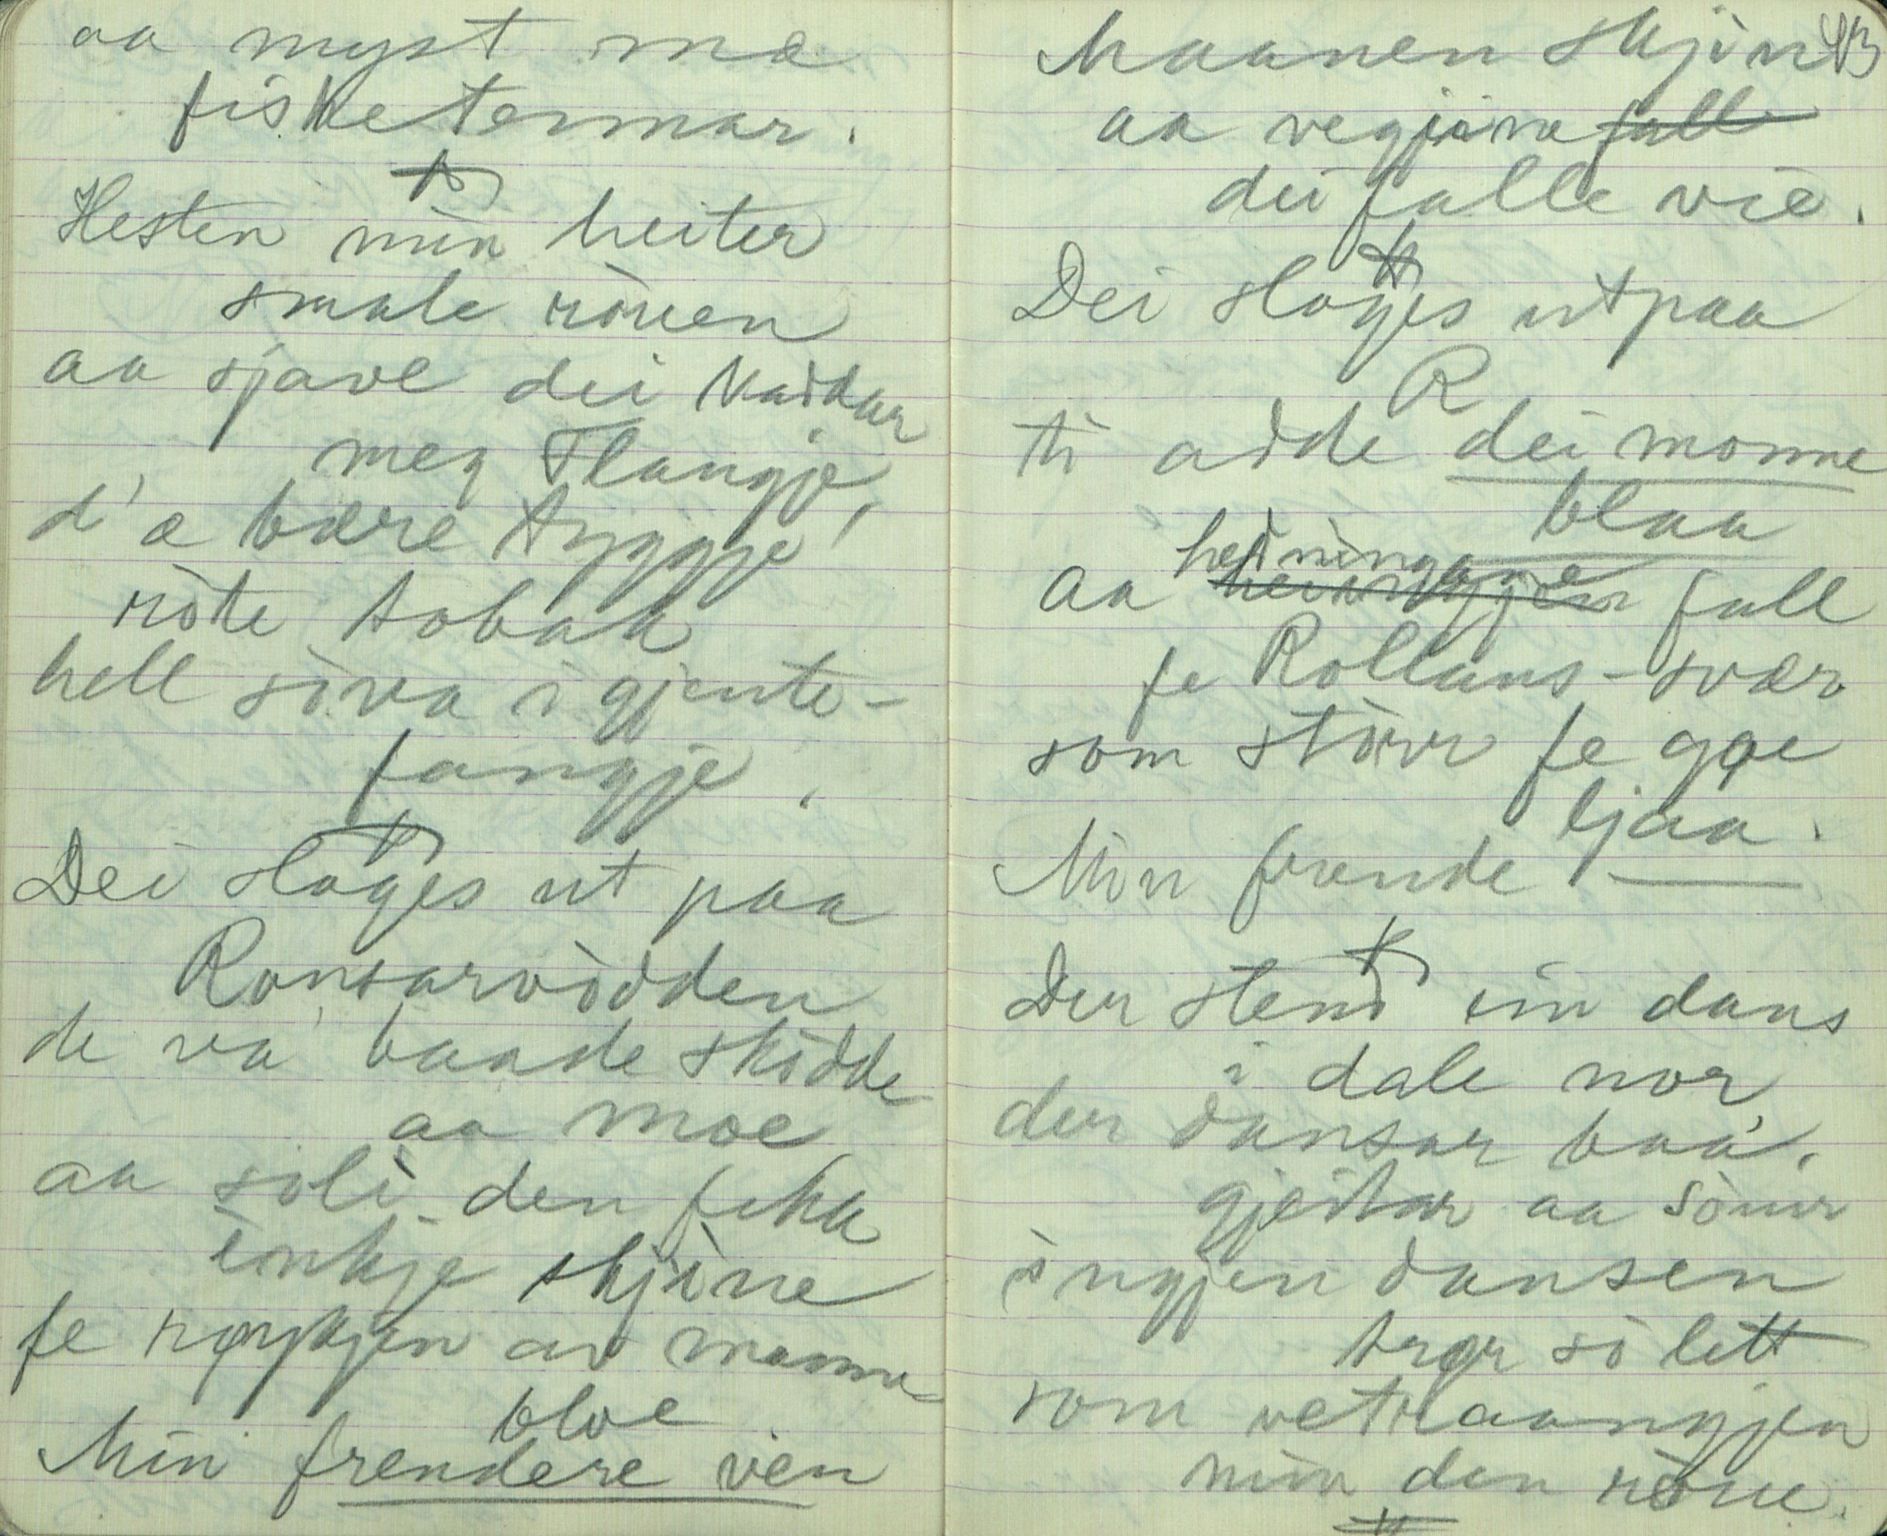 aa myst mæ
fisketennar.
Hesten min heiter
smale ròuen
aa sjave dei kaddar
meg Flangje,
d'æ bære tyggje
ròte tobak
hell sòva i gjente-
fangje.
Dei sloges ut paa
Ronsarvòdden
de va' baade skòdde
aa moe
aa soli den fekk
inkje skjine
fe røykjen av manne
bloe
Min frendere ven
Maanen skjin 43
aa vegjine fall
dei falle vie.
Dei sloges utpaa
R
ti adde dei monne
blaa
heiningane
aa fall
fe Rollans-svær
som stòrr fe goe
ljaa.
Min frende
Der stend ein dans
i dale nor,
der dansar baa'
gjeitar aa sòuir
ingjen dansen
trør sò lett
som vetraangjen
min den ròue.